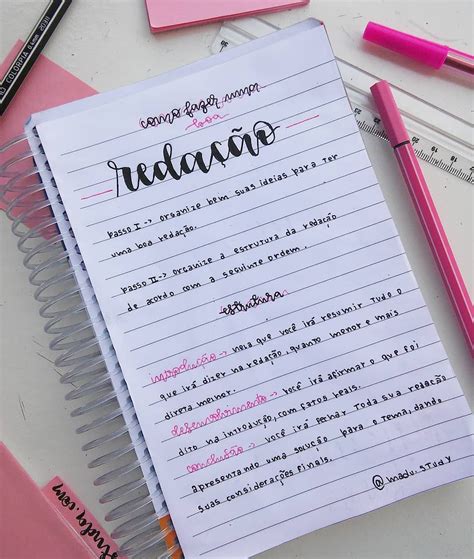 como fazer uma
boa
redação
Passo I -> organize bem suas ideias para ter
uma boa redação.
Passo II -> organize a estrutura da redação
de acordo com a seguinte ordem.
estrutura
introdução -> nela que você irá resumir tudo o
que irá dizer na redação, quanto menor e mais
direta melhor.
desenvolvimento -> você irá afirmar o que foi
dito na introdução, com fatos reais.
conclusão -> você irá fechar toda sua redação
apresentando uma solução para o tema, dando
suas considerações finais.
@madu.study
COLORPIA
study.com